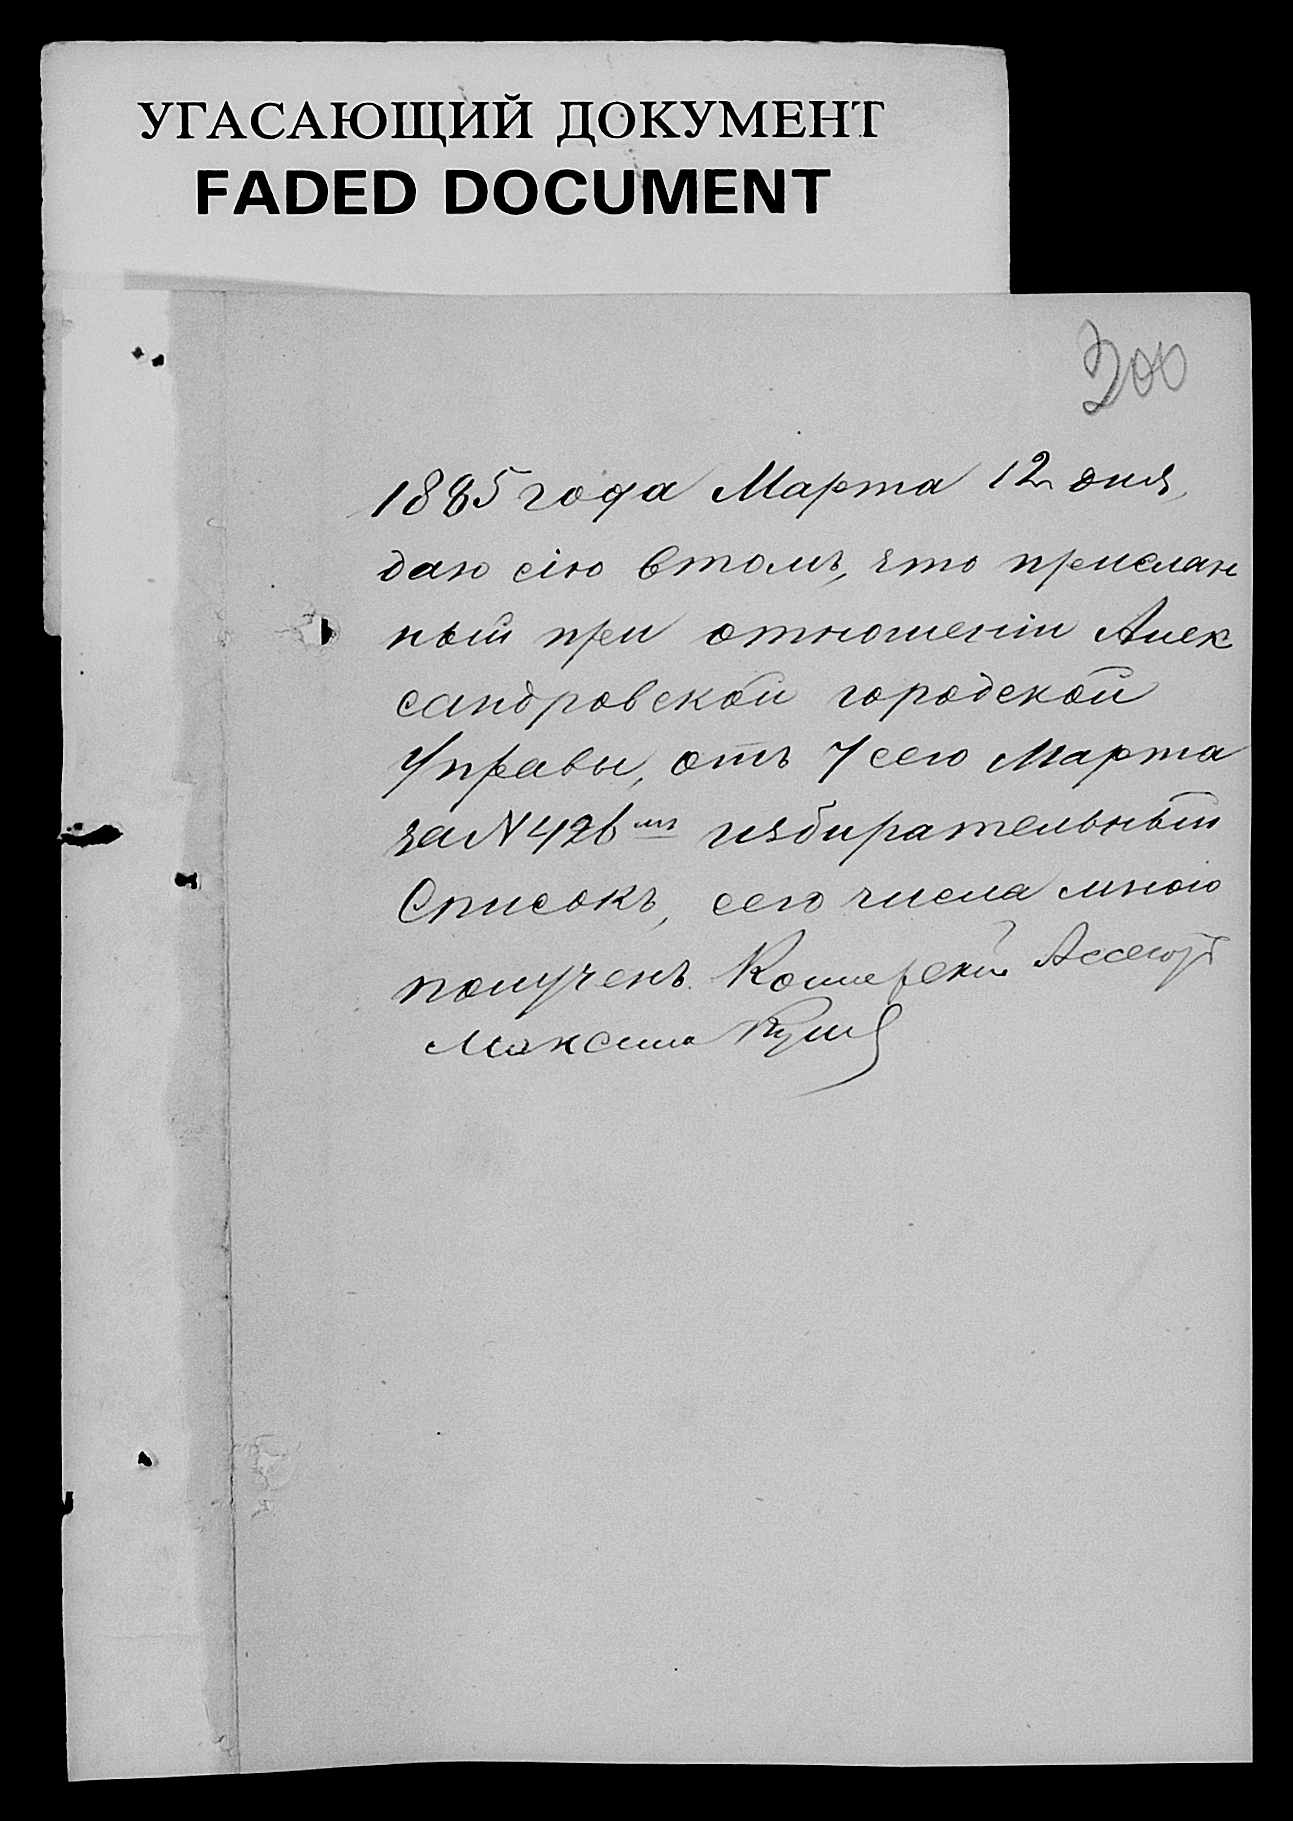 УГАСАЮЩИЙ ДОКУМЕНТ
FADED DOCUMENT
200
1885 года Марта 12 дня,
даю сію в томъ, что прислан
ный при отношеніи Алек
сандровской городской
Управы, отъ 7 сего Марта
за N 426мъ избирательный
Списокъ, сего числа мною
полученъ. Ассесоръ
Максим